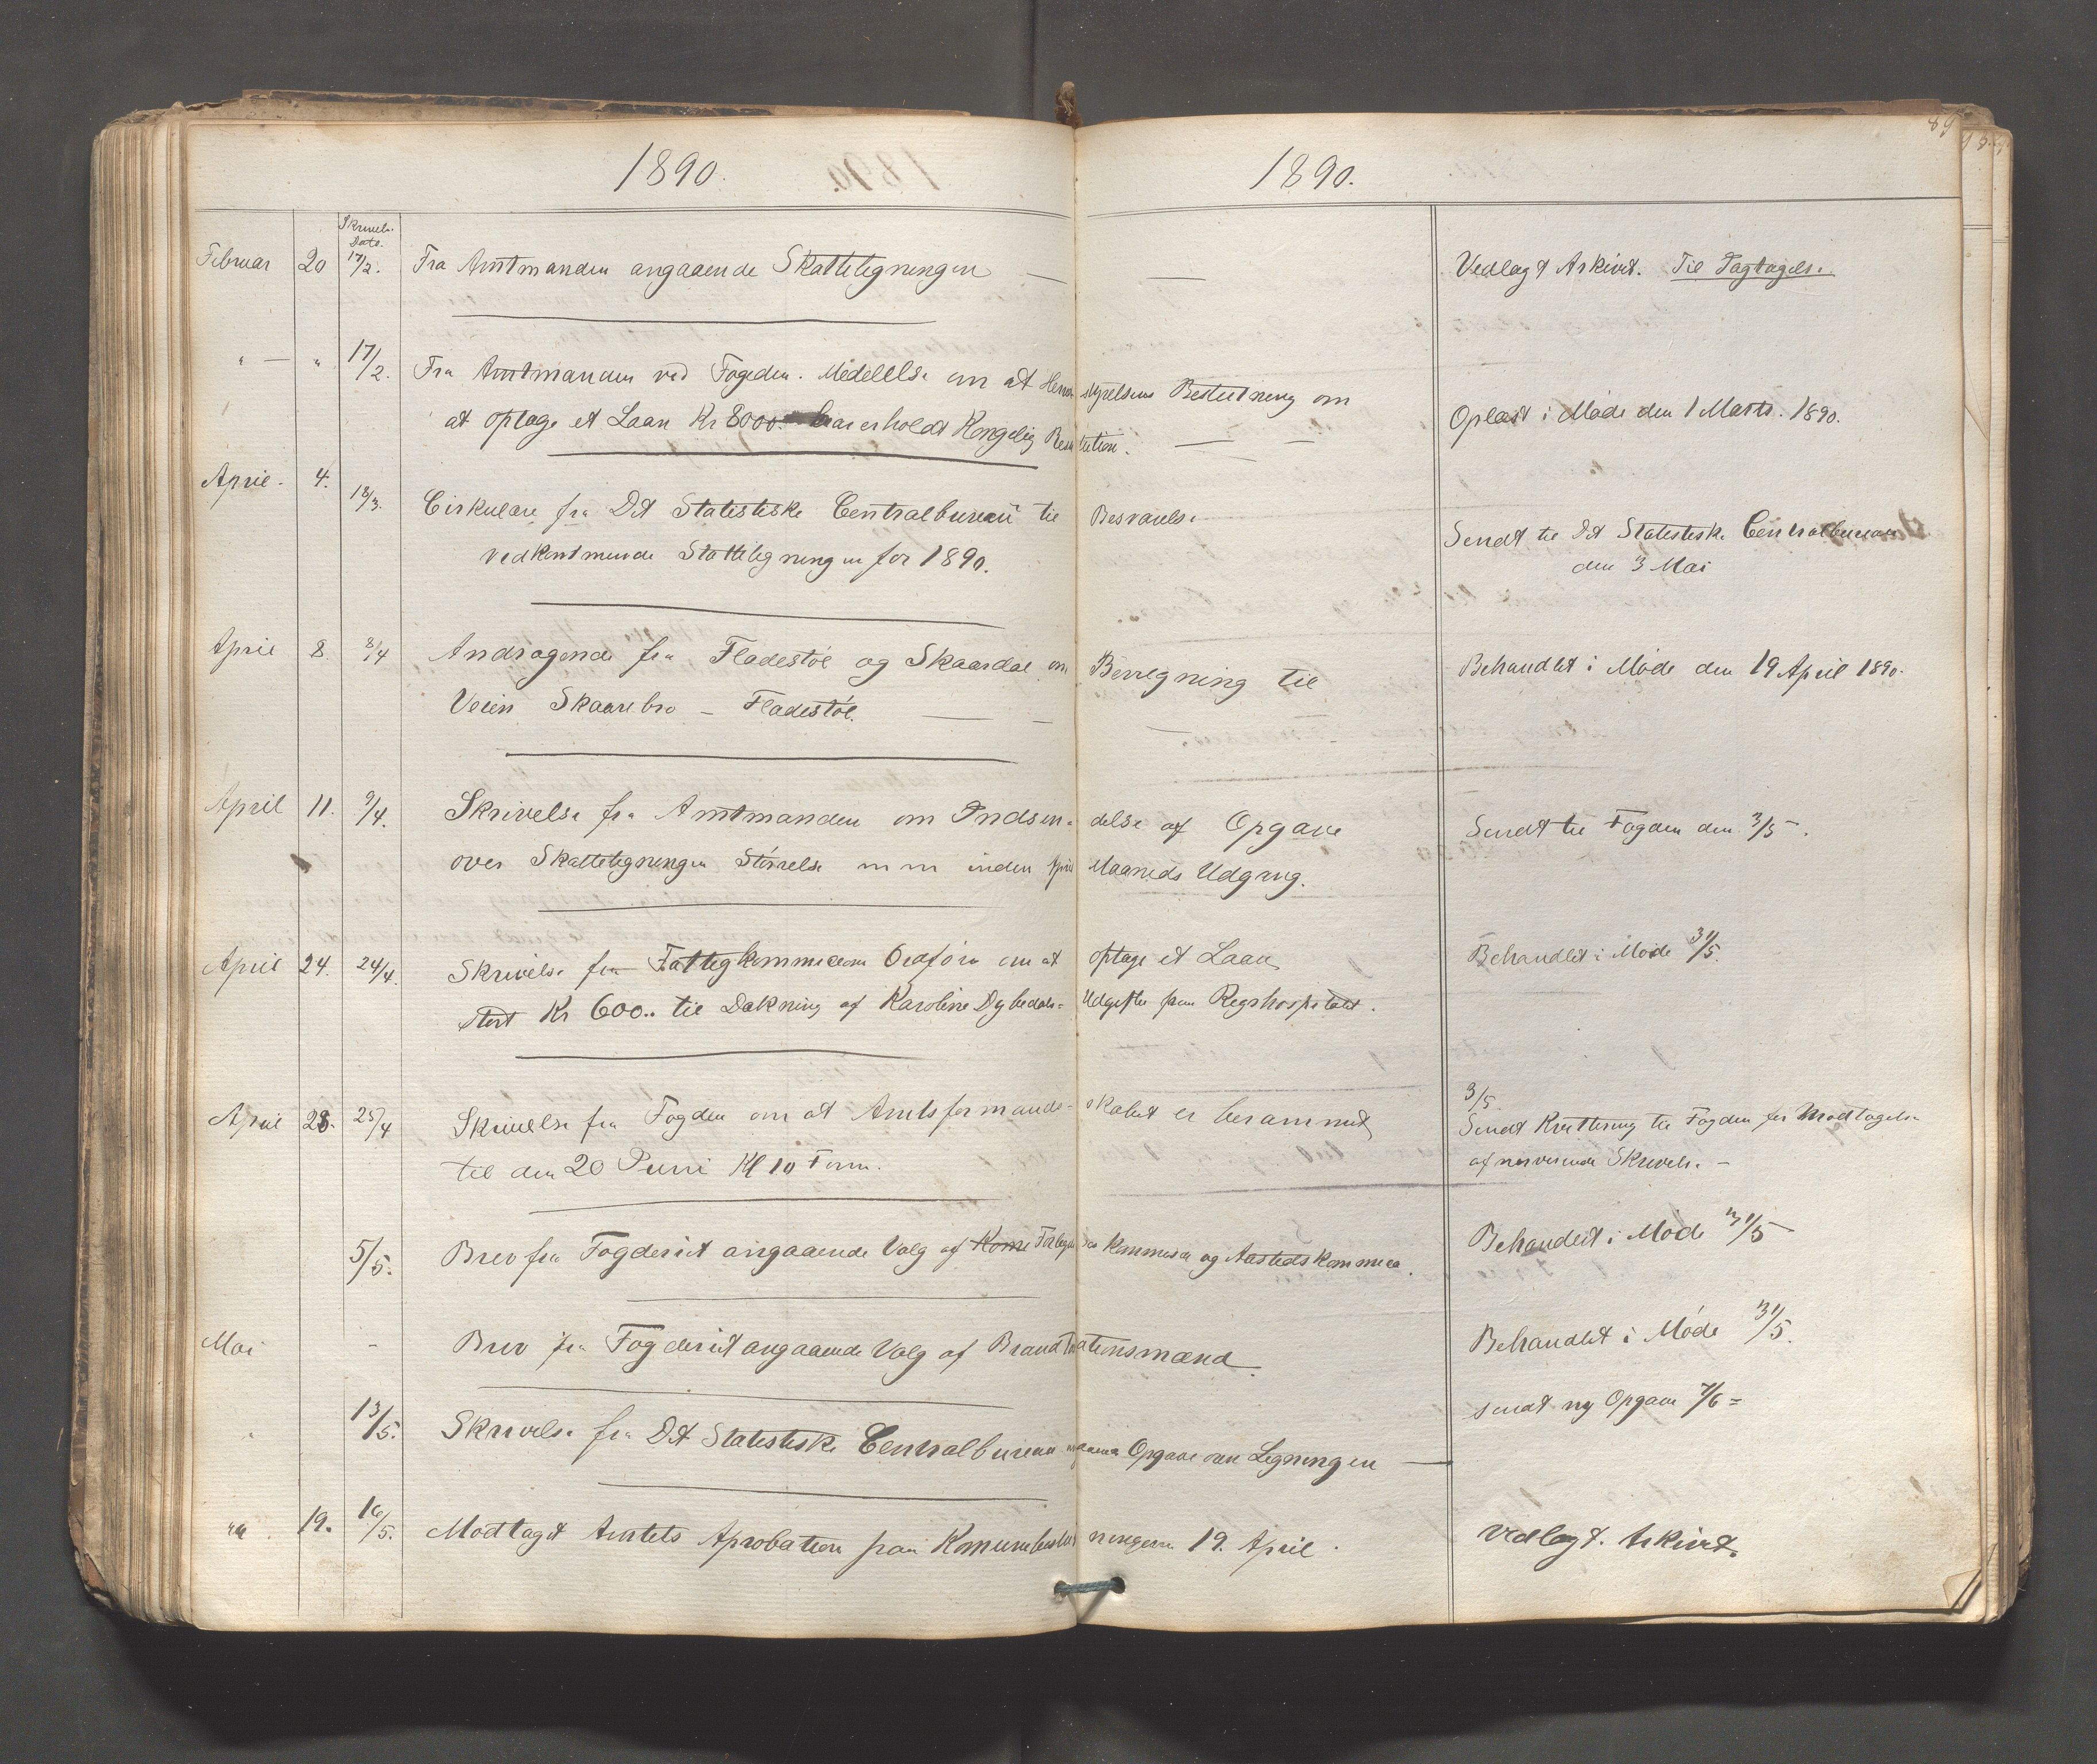 1890.
1890.
89
Skrivels.
Dato.
Februar 20 17/2. Fra Amtmanden angaaende Skatteligningen — — Vedlagt Arkivet. Til Iagtagelse.
" — " 17/2. Fra Amtmanden ved Fogeden. Meddelelse om at Herredstyrelsens Beslutning om
at optage et Laan Kr 8000.. har erholdt Kongelig Resolution. — — Oplæst i Møde den 1 Marts. 1890.
April. 4. 18/3. Cirkulære fra Det Statistiske Centralbureau til Besvarelse
vedkommende Skatteligningen for 1890. Sendt til Det Statistiske Centralbureau
den 3 Mai
April 8 8/4 Andragende fra Fladestøl og Skaardal om Beregning til
Veien Skaarebro — Fladestøl. — — — Behandlet i Møde den 19 April 1890.
April 11. 9/4. Skrivelse fra Amtmanden om Indsendelse af Opgave
over Skatteligningen Størrelse m m inden April Maaneds Udgang. Sendt til Fogden den 3/5.
April 24. 24/4. Skrivelse fra Fattigkommissionens Ordfører om at optage et Laan
stort Kr 600.. til Dækning af Karoline Dybedals Udgifter paa Regshospitalet. Behandlet i Møde 31/5.
April 28. 25/4 Skrivelse fra Fogden om at Amtsformandskabet er berammet
til den 20 Juni Kl 10 Form.
3/5.
Sendt Kvittering til Fogden for Modtagelse
af nærværende Skrivelse. —
5/5. Brev fra Fogderiet angaaende Valg af Kome Forligelses Kommissær og Aastedskommissær. Behandlet i Møde 31/5
Mai - Brev fra Fogderiet angaaende Valg af Brandtaxtationsmænd. Behandlet i Møde 31/5.
" 13/5. Skrivelse fra Det Statistiske Centralbureau angaaende Opgave over Ligningen — sendt ny Opgave 7/6 =
" 19. 16/5. Modtaget Amtets Aprobation paa Komunebeslutningerne 19. April. vedlagt. Arkivet.